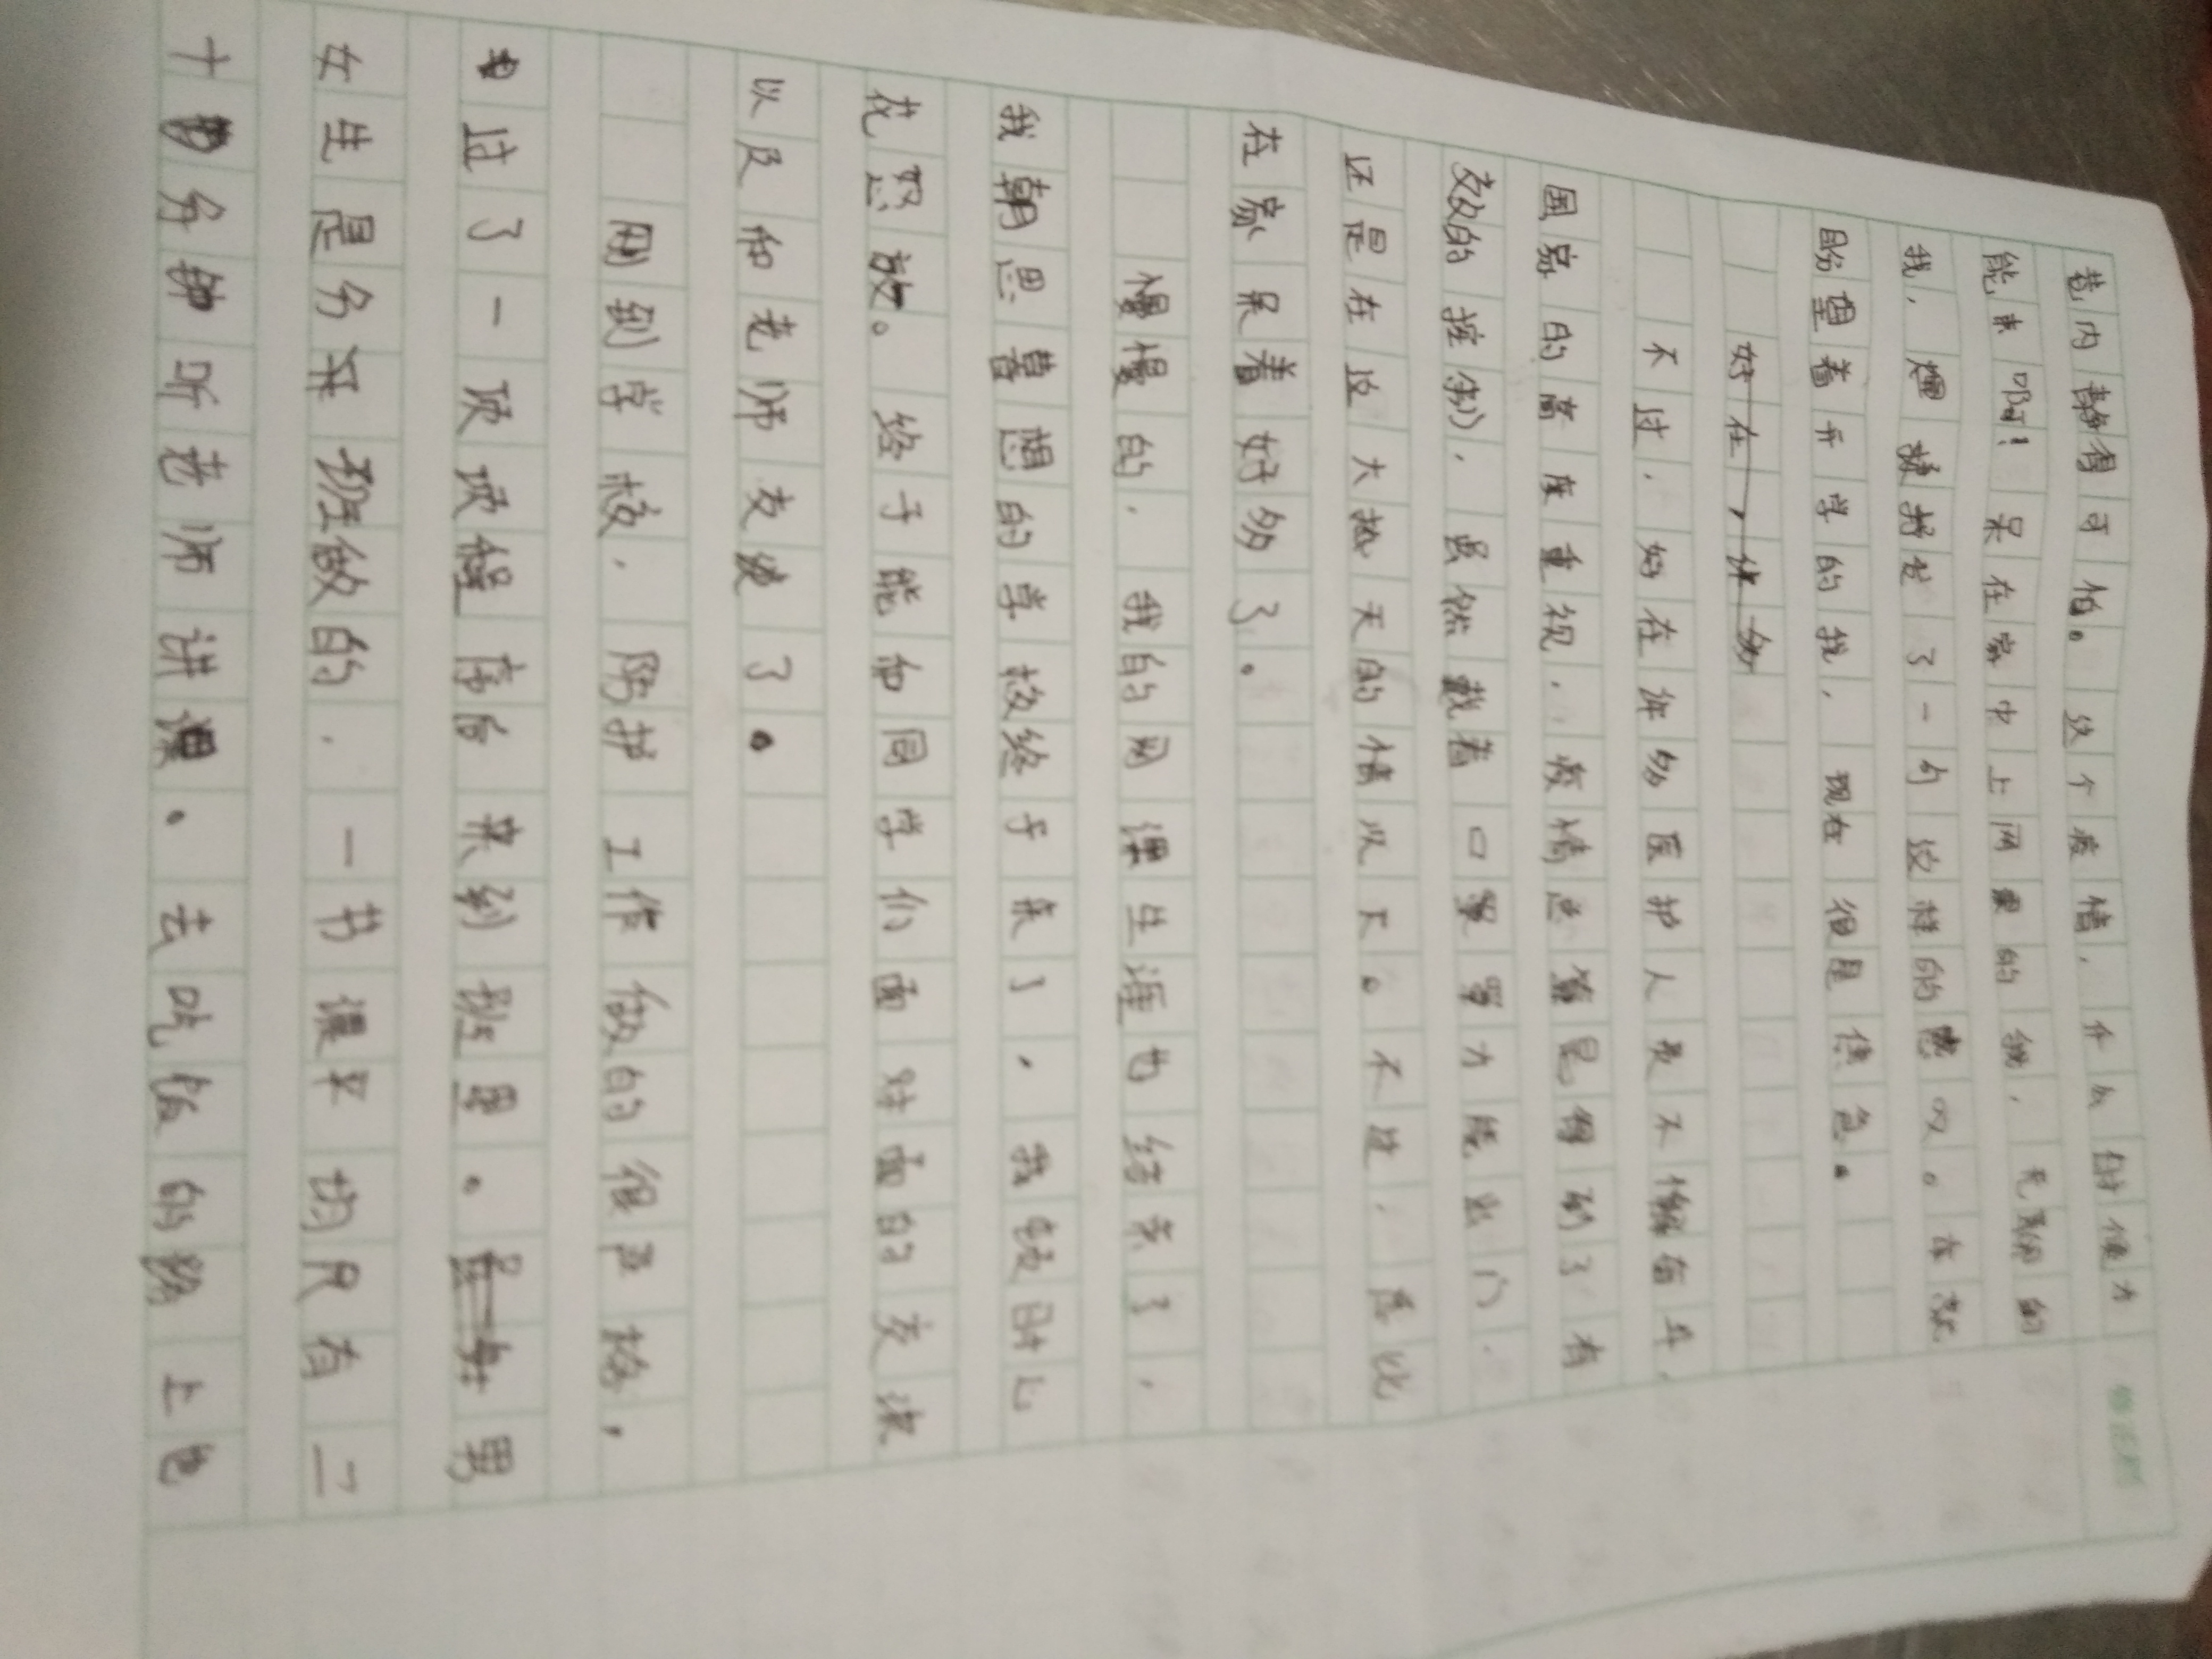 巷内静得可怕。这个疫情，什么时候才
能来啊！呆在家中上网课的我，无聊的
我，抒发了一句这样的感叹。本就
盼望着开学的我，现在很是焦急。
好在，体多
不过，好在许多医护人员不懈奋斗，
国家的高度重视，疫情总算是得到了有
效的控制，虽然戴着口罩才能出门，
还是在这大热天的情况下。不过，总比
在家呆着好多了。
慢慢的，我的网课生涯也结束了，
我朝思暮想的学校终于来了，我顿时心
花怒放。终于能和同学们面对面的交谈
以及和老师交谈了。
用到学校，防护工作做的很严格，
过了一项项程序后来到班里。男
女生是分开班做的，一节课平均只有二
十分钟听老师讲课。去吃饭的路上也